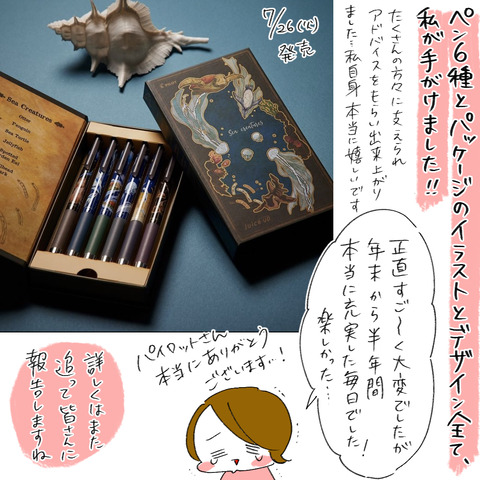 ペン6種とパッケージのイラストとデザイン全て、
私が手がけました!!
たくさんの方々に支えられ
アドバイスをもらい出来上がり
ました…私自身 本当に嬉しいです
7/26(火)
発売
Sea Creatures
Orca
Penguin
Sea Turtle
Jellyfish
Sea creatures
JUICE UP
正直すご〜く大変でしたが
年末から半年間
本当に充実した毎日でした!
楽しかった…
パイロットさん
本当にありがとう
ございます…!
詳しくはまた
追って皆さんに
報告しますね